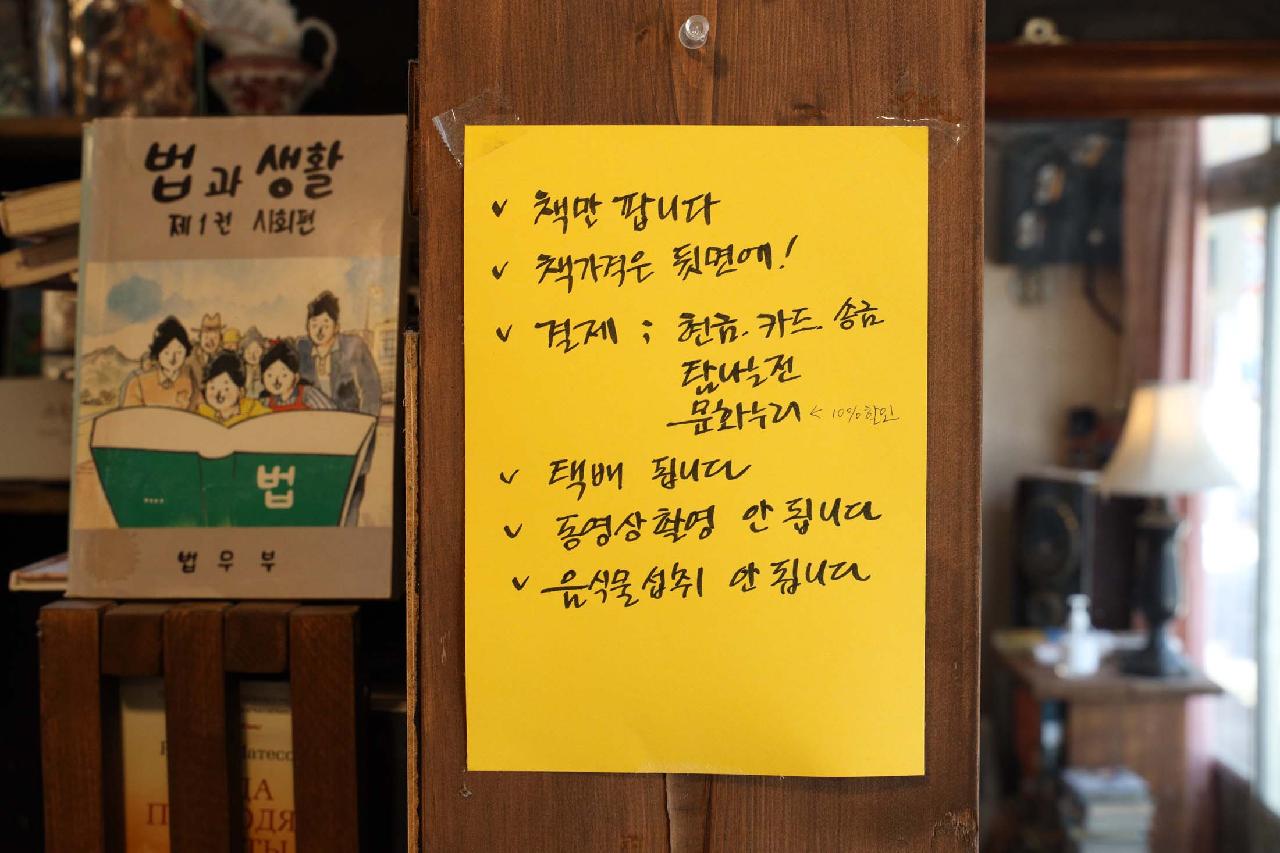 법과 생활
제1권 시회편
법
법무부
✓ 책만 팝니다
✓ 책가격은 뒷면에!
✓ 결제 ; 현금. 카드. 송금
탐나는전
문화누리 < 10% 할인
✓ 택배 됩니다
✓ 동영상 촬영 안 됩니다
✓ 음식물 섭취 안 됩니다